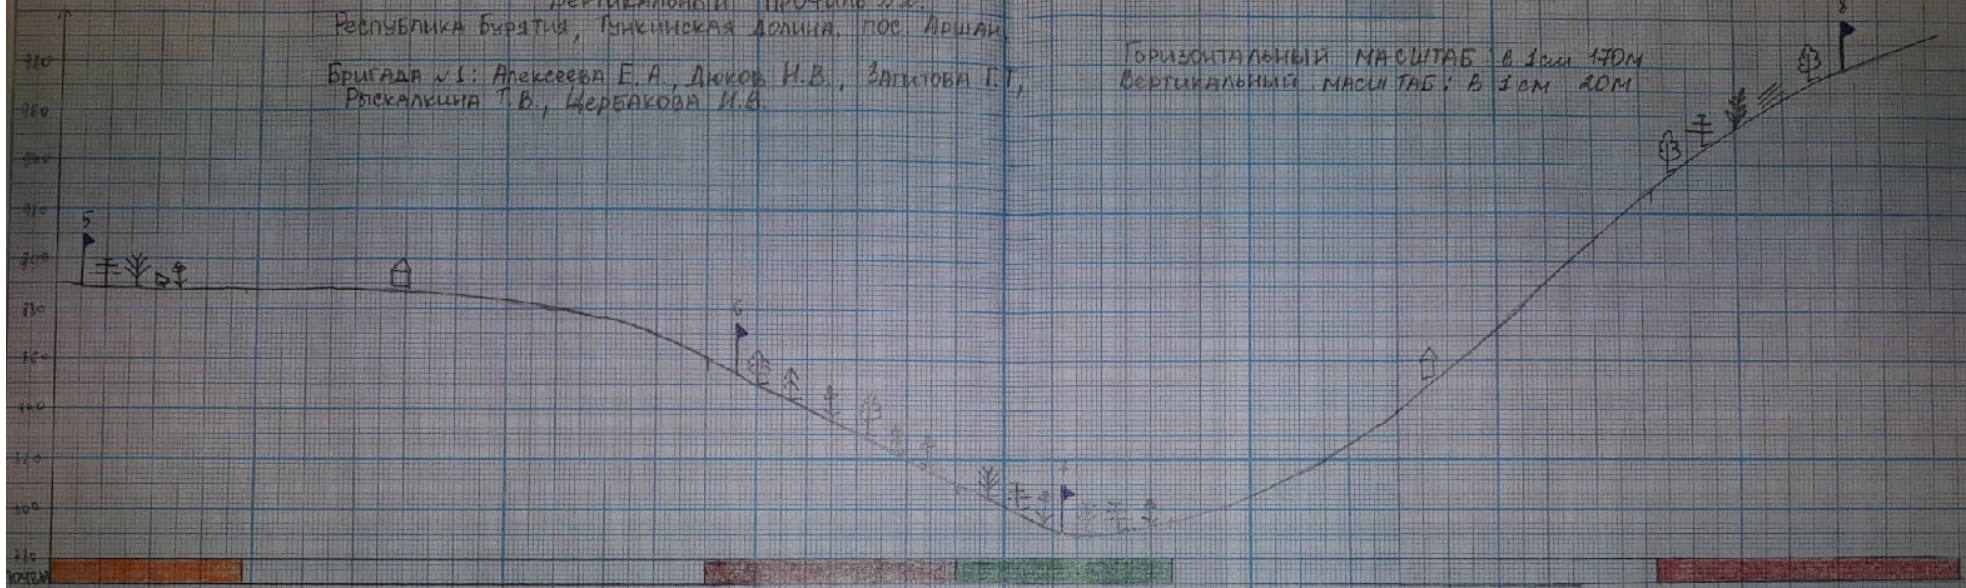 Вертикальный профиль №2.
Республика Бурятия, Тункинская долина, пос. Аршан
Бригада №1: Алексеева Е.А., Дюков Н.В., Загитова Г.Г.,
Рыскалкина Т.В., Щербакова И.В.
Горизонтальный масштаб: в 1см 170м
Вертикальный масштаб: в 1см 20м
8
5
6
7
почвы